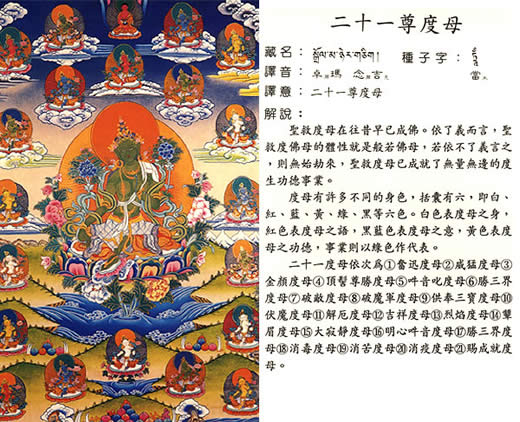 二十一尊度母
藏名：སྒྲོལ་མ་ཉེར་གཅིག། 種子字：
譯音：卓瑪 念吉 當
譯意：二十一尊度母
解說：
聖救度母在往昔早已成佛。依了義而言，聖
救度佛母的體性就是般若佛母，若依不了義言之
，則無始劫來，聖救度母已成就了無量無邊的度
生功德事業。
度母有許多不同的身色，括囊有六，即白、
紅、藍、黃、綠、黑等六色。白色表度母之身，
紅色表度母之語，黑藍色表度母之意，黃色表度
母之功德，事業則以綠色作代表。
二十一度母依次為①奮迅度母②威猛度母③
金顏度母④頂髻尊勝度母⑤吽音叱度母⑥勝三界
度母⑦破敵度母⑧破魔軍度母⑨供奉三寶度母⑩
伏魔度母⑪解厄度母⑫吉祥度母⑬烈焰度母⑭顰
眉度母⑮大寂靜度母⑯明心吽音度母⑰勝三界度
母⑱消毒度母⑲消苦度母⑳消疫度母㉑賜成就度
母。